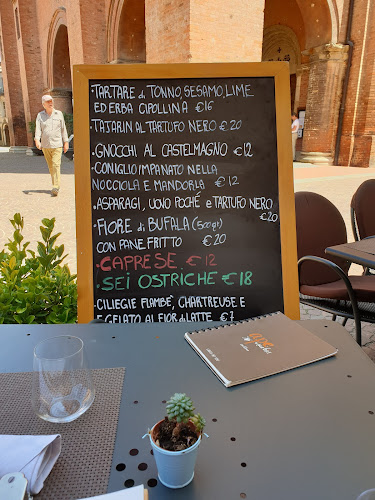 ·TARTARE di TONNO, SESAMO, LIME
ED ERBA CIPOLLINA €16
·TAJARIN AL TARTUFO NERO €20
·GNOCCHI AL CASTELMAGNO €12
·CONIGLIO IMPANATO NELLA
NOCCIOLA E MANDORLA €12
·ASPARAGI, UOVO POCHÉ e TARTUFO NERO
€20
·FIORE di BUFALA (500gr)
CON PANE FRITTO €20
·CAPRESE €12
·SEI OSTRICHE €18
·CILIEGIE FLAMBÉ, CHARTREUSE E
GELATO AL FIOR di LATTE €7